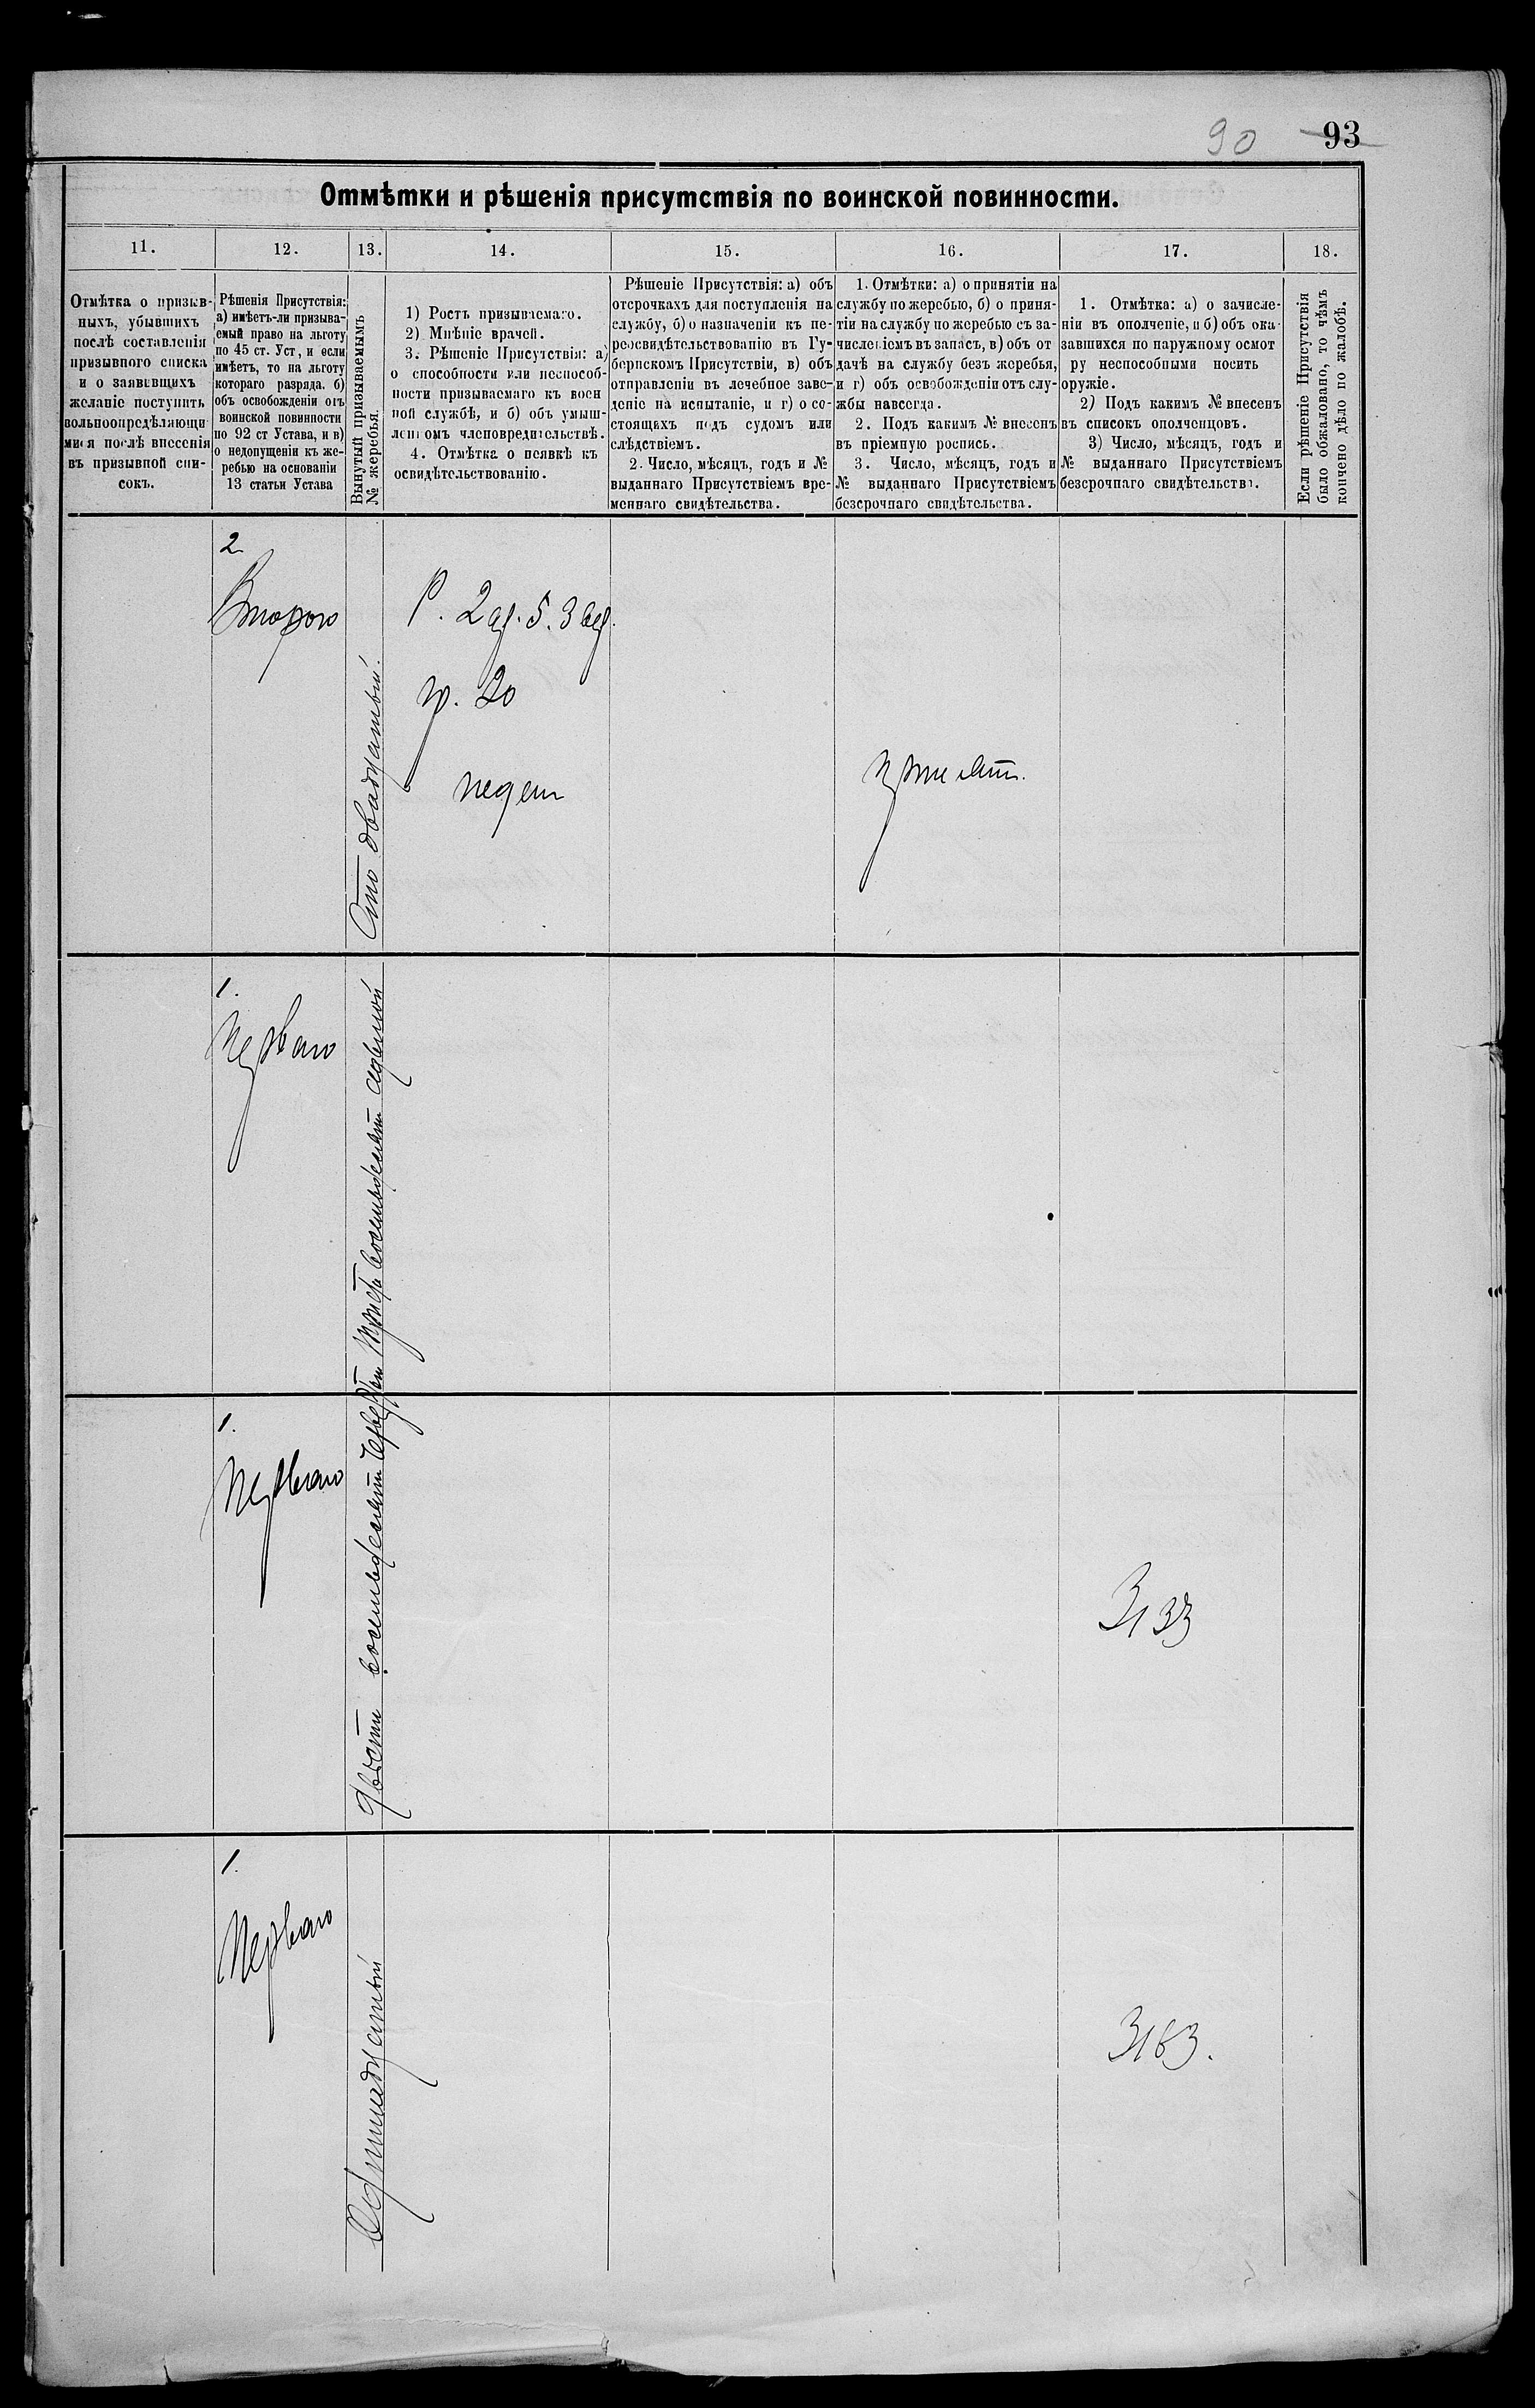 90 93
Отмѣтки и рѣшенія присутствія по воинской повинности.
11. 12. 13. 14. 15. 16. 17. 18.
Отмѣтка о призыв-
ныхъ, убывшихъ
послѣ составленія
призывного списка
и о заявившихъ
желаніе поступить
вольноопредѣляющи
мися послѣ внесенія
въ призывной спи-
сокъ.
Рѣшенія Присутствія:
а) имѣетъ-ли призыва-
емый право на льготу
по 45 ст. Уст, и если
имѣетъ, то на льготу
котораго разряда. б)
объ освобожденіи отъ
воинской повинности
по 92 ст Устава, и в)
о недопущеніи къ же-
ребью на основаніи
13 статьи Устава
Вынутый призываемымъ
№ жеребья.
1) Ростъ призываемаго.
2) Мнѣніе врачей.
3. Рѣшеніе Присутствія: а)
о способности или неспособ-
ности призываемаго къ воен
ной службѣ, и б) объ умыш-
ленномъ членовредительствѣ.
4. Отмѣтка о неявкѣ къ
освидѣтельствованію.
Рѣшеніе Присутствія: а) объ
отсрочкахъ для поступленія на
службу, б) о назначеніи къ пе-
реосвидѣтельствованію въ Гу-
бернскомъ Присутствіи, в) объ
отправленіи въ лечебное заве-
деніе на испытаніе, и г) о со-
стоящихъ подъ судомъ или
слѣдствіемъ.
2. Число, мѣсяцъ, годъ и №
выданнаго Присутствіемъ вре-
меннаго свидѣтельства.
1. Отмѣтки: а) о принятіи на
службу по жеребью, б) о приня-
тіи на службу по жеребью съ за-
численіемъ въ запасъ, в) объ от
дачѣ на службу безъ жеребья,
и г) объ освобожденіи отъ слу-
жбы навсегда.
2. Подъ какимъ № внесенъ
въ пріемную роспись.
3. Число, мѣсяцъ, годъ и
№ выданнаго Присутствіемъ
безсрочнаго свидѣтельства.
1. Отмѣтка: а) о зачисле-
ніи въ ополченіе, и б) объ ока-
завшихся по наружному осмот
ру неспособными носить
оружіе.
2) Подъ какимъ № внесенъ
въ списокъ ополченцовъ.
3) Число, мѣсяцъ, годъ и
№ выданнаго Присутствіемъ
безсрочнаго свидѣтельства.
Если рѣшеніе Присутствія
было обжаловано, то чѣмъ
кончено дѣло по жалобѣ.
2
Второго
Сто двадцатый.
Р. 2 ар. 5. 3 вер.
гр. 20
принят.
1.
Перваго
Триста восемьдесят седьмой
1.
Перваго
Двѣсти восемьдесят
3133
1.
Перваго
Одинадцатый
3163.